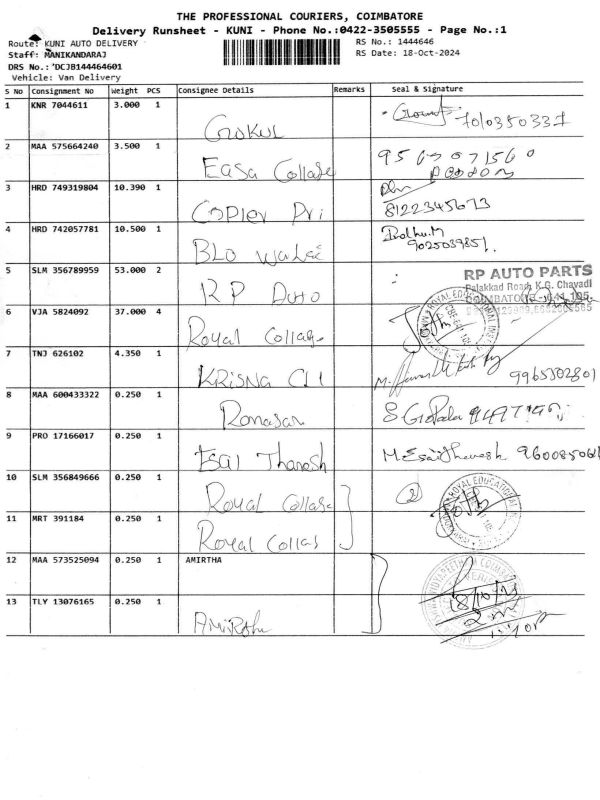 THE PROFESSIONAL COURIERS, COIMBATORE
Delivery Runsheet - KUNI - Phone No.:0422-3505555 - Page No.:1
Route: KUNI AUTO DELIVERY
RS No.: 1444646
Staff: MANIKANDARAJ
RS Date: 18-Oct-2024
DRS No.: 'DCJB144464601
Vehicle: Van Delivery
S No Consignment No Weight PCS Consignee Details Remarks Seal & Signature
1 KNR 7044611 3.000 1 Gokul 7010350337
2 MAA 575664240 3.500 1 Easa Collage
3 HRD 749319804 10.390 1 Copier Pri 8122345673
4 HRD 742057781 10.500 1 9025039851.
5 SLM 356789959 53.000 2 R P Auto
RP AUTO PARTS
Palakkad Road, K.G. Chavadi
6 VJA 5824092 37.000 4 Royal Collage
7 TNJ 626102 4.350 1 KRISNA 9965302801
8 MAA 600433322 0.250 1
9 PRO 17166017 0.250 1 Esai Thanesh
10 SLM 356849666 0.250 1 Royal Collage 2
11 MRT 391184 0.250 1 Royal Collas
12 MAA 573525094 0.250 1 AMIRTHA
13 TLY 13076165 0.250 1